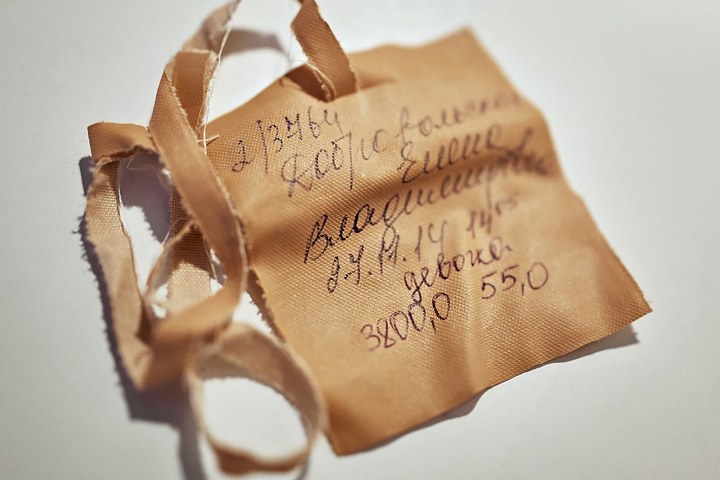 2/3764
Добровольская
Елена
Владимировна
27.11.14 14⁰⁵
девочка.
3800,0 55,0